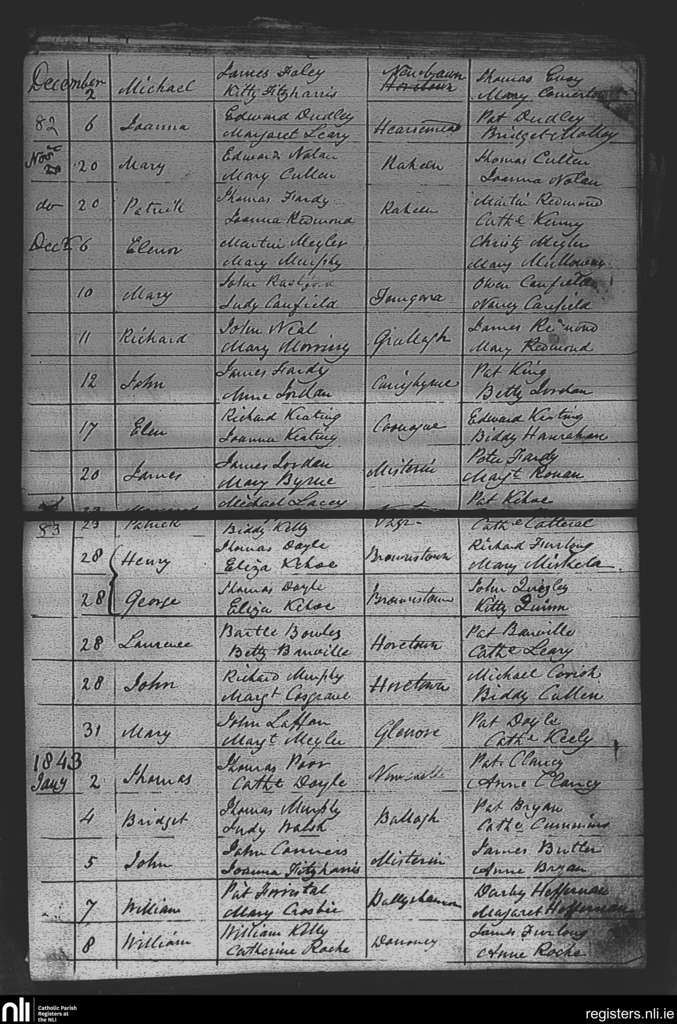 December James Foley Newbawn Thomas
2 Michael Kitty Fitzharris Horetown Mary
82 6 Joanna Edward Dudley Pat Dudley
Margaret Leary Bridget Molloy
Novr Edward Nolan Thomas Cullen
28 20 Mary Mary Cullen Raheen Joanna Nolan
do 20 Patrick Thomas Fardy Raheen Martin Redmond
Joanna Redmond Cathe Kenny
Decr 6 Elenor Martin Meyler Christy Meyler
Mary Murphy Mary
10 Mary John Owen Canfield
Judy Canfield Nancy Canfield
11 Richard John Neal Grallagh James Redmond
Mary Morrissy Mary Redmond
12 John James Fardy Carrigbyrne Pat King
Anne Jordan Betty Jordan
17 Elen Richard Keating Edward Keating
Joanna Keating Biddy Hanrahan
20 James James Jordan Misterin Peter Fardy
Mary Byrne Margt Ronan
23 Michael Lacey Pat Kehoe
83 23 Patrick Biddy Kelly Cathe Catteral
28 Henry Thomas Doyle Brownstown Richard Furlong
Eliza Kehoe Mary
28 George Thomas Doyle Brownstown John Quigley
Eliza Kehoe Kitty Quinn
28 Laurence Bartle Bowles Horetown Pat Banville
Betty Banville Cathe Leary
28 John Richard Murphy Horetown Michael Corish
Margt Cosgrave Biddy Cullen
31 Mary John Laffan Glenore Pat Doyle
Margt Meyler Cathe Keely
1843 Thomas Poor Pat Clancy
Jany 2 Thomas Cathe Doyle Newcastle Anne Clancy
4 Bridget Thomas Murphy Ballagh Pat Bryan
Judy Walsh Cathe Cummins
5 John John Conners Misterin James Butler
Joanna Fitzharris Anne Bryan
7 William Pat Forristal Ballyshannon Darby Heffernan
Mary Crosbie Margaret Heffernan
8 William William Kelly Donowney James Furlong
Catherine Roche Anne Roche
nli Catholic Parish
Registers at
the NLI
registers.nli.ie